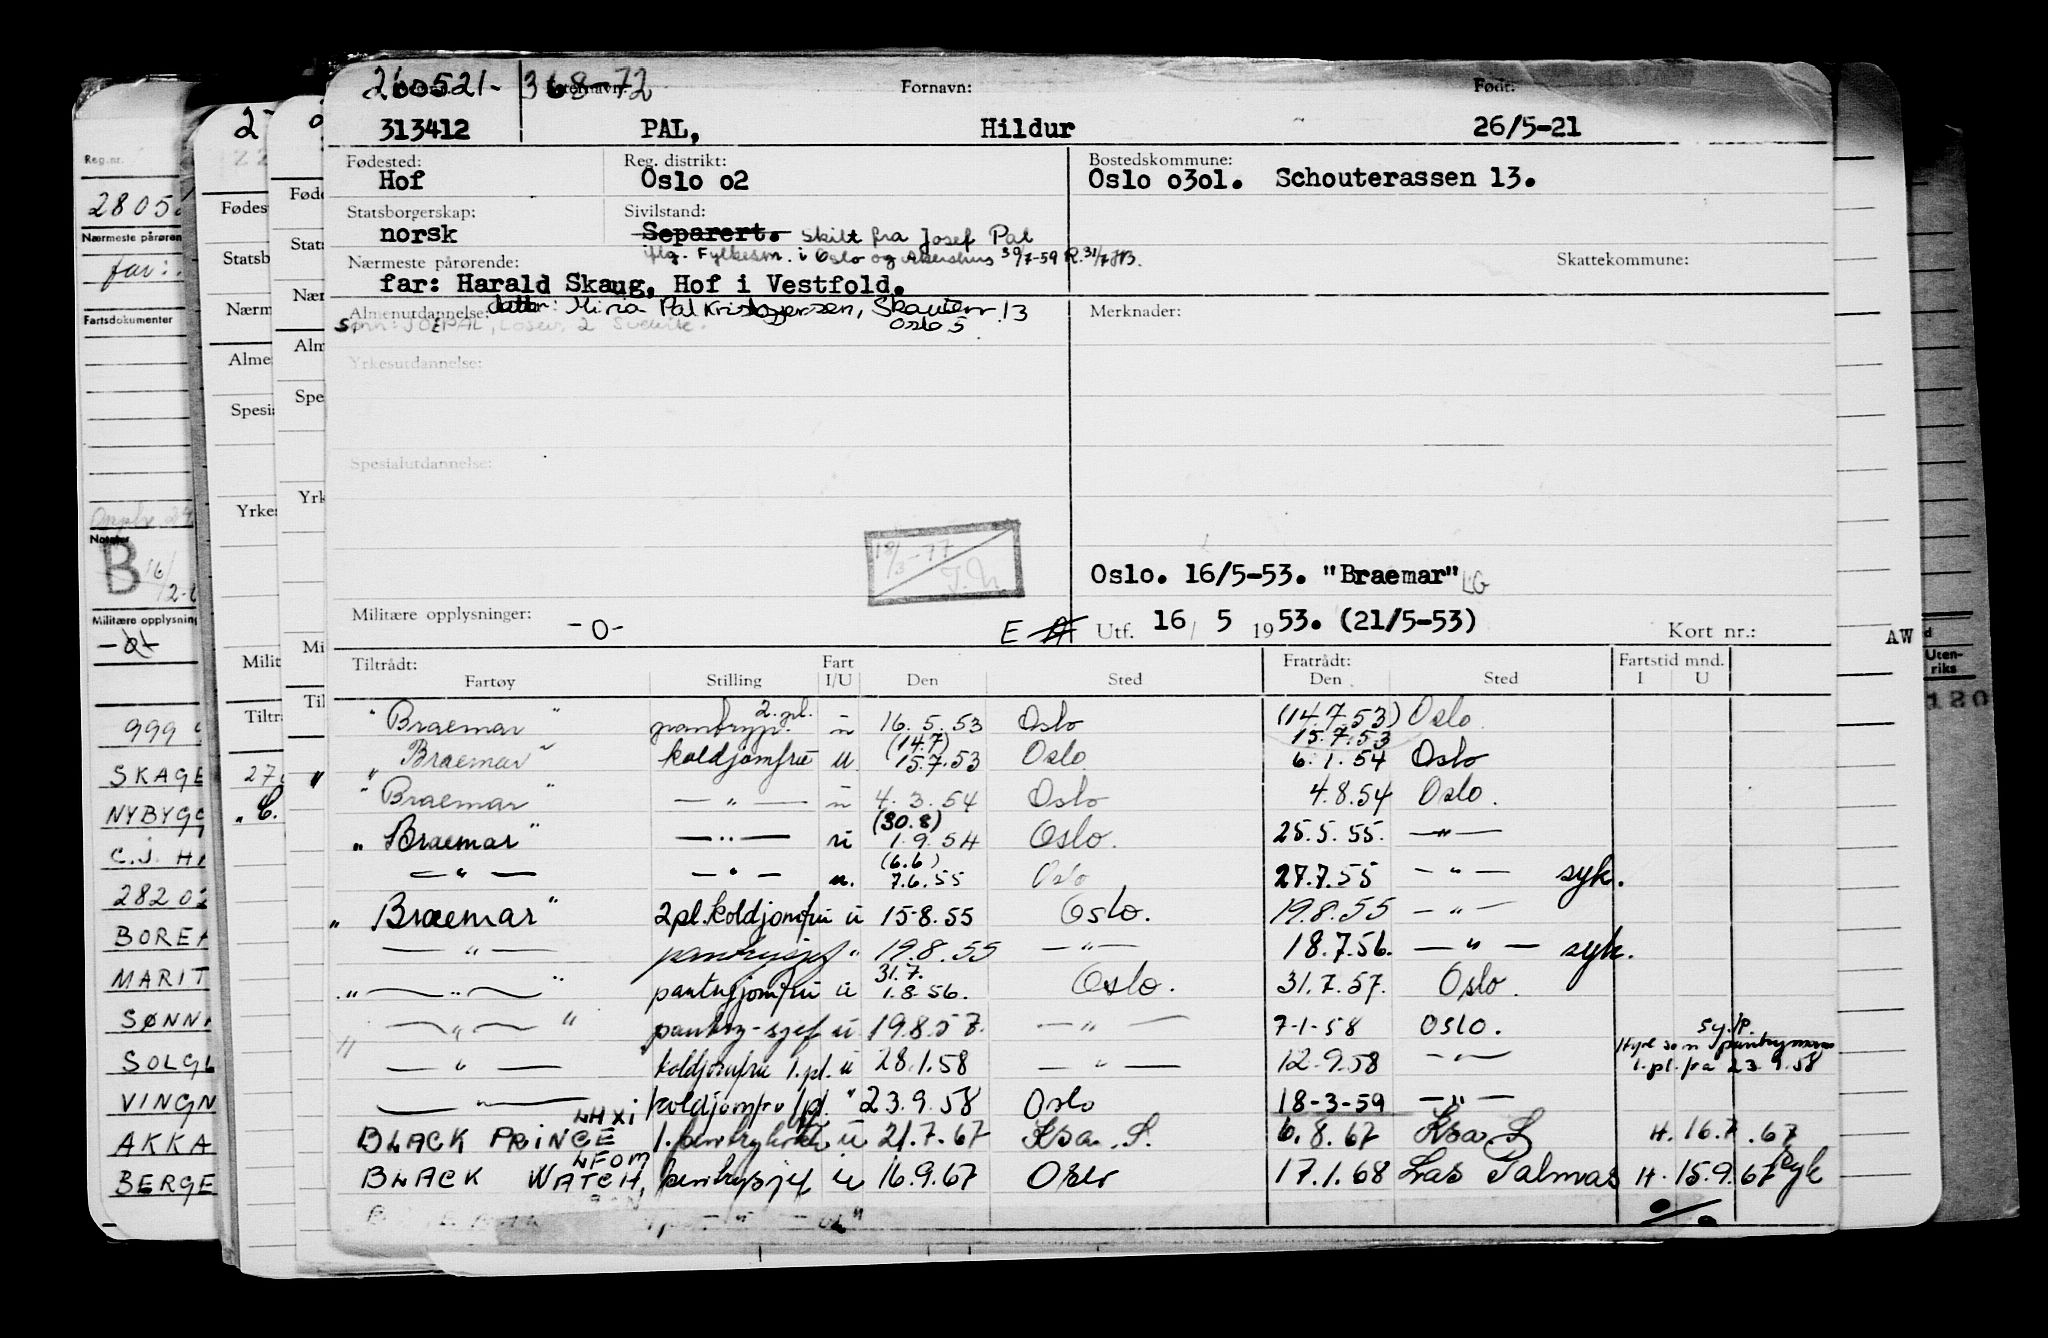 260521- 368-72
Fornavn: Født:
313412 PAL, Hildur 26/5-21
Fødested: Reg. distrikt: Bostedskommune:
Hof Oslo o2 Oslo o3o1. Schouterassen 13.
Statsborgerskap: Sivilstand:
norsk Separert. Skilt fra Josef Pal
iflg. Fylkesm. i Oslo og Akershus 30/7-59 R. 31/7
Nærmeste pårørende: Skattekommune:
far: Harald Skaug, Hof i Vestfold.
datter: Miria Pal Kristoffersen, 13
Almenutdannelse: Oslo 5 Merknader:
Yrkesutdannelse:
Spesialutdannelse:
18/3-77
Oslo. 16/5-53. "Braemar" LG
Militære opplysninger: -0- E Utf. 16/5 1953. (21/5-53) Kort nr.:
Tiltrådt: Fart Fratrådt: Fartstid mnd.
Fartøy Stilling I/U Den Sted Den Sted I U
"Braemar" pantryp. 2.pl. u 16.5.53 Oslo (14.7.53) Oslo
15.7.53
"Braemar" koldjomfru u (14.7) 15.7.53 Oslo 6.1.54 Oslo
"Braemar" — " — u 4.3.54 Oslo 4.8.54 Oslo.
"Braemar" — " — u (30.8) 1.9.54 Oslo. 25.5.55. — " —
— " — — " — u. (6.6) 7.6.55 Oslo 27.7.55 — " — syk.
"Braemar" 2pl. koldjomfru u 15-8.55 Oslo. 19.8.55 — " —
— " — pantrysjef " 19.8.55 — " — 18.7.56. — " — syk.
" — " — " pantryjomfru u 31.7. 1.8.56. Oslo. 31.7.57. Oslo.
" — " — " pantry-sjef u 19.8.57. — " — 7-1-58 Oslo.
— " — koldjomfru 1.pl. u 28.1.58 — " — 12.9.58 — " — Hyre som pantrymann
1.pl. fra 23.9.58
— " — koldjomfru 1pl. " 23.9.58 Oslo 18-3-59 — " —
BLACK PRINCE LHXI 1. u 21.7.67 Kba. S. 6.8.67 Kba S H. 16.7.67
BLACK WATCH, LFOM pentrysjef u 16.9.67 Oslo 17.1.68 Las Palmas H. 15.9.67 syk
Reg.nr.
Nærmeste pårøren
far:
Fartsdokumenter
Notater
B 16/
Militære opplysning
999
SKAGE
NYBYGG
C.J. HA
28202
BOREA
MARIT
SØNN
SOLGL
VINGN
AKKA
BERGE
2
Fødes
Statsb
Nærm
Alme
Spesia
Yrkes
Milit
Tiltrå
27.
"C.
Føde
Stats
Nær
Alm
Spe
Yrk
Mi
Til
AW
Uten-
riks
120